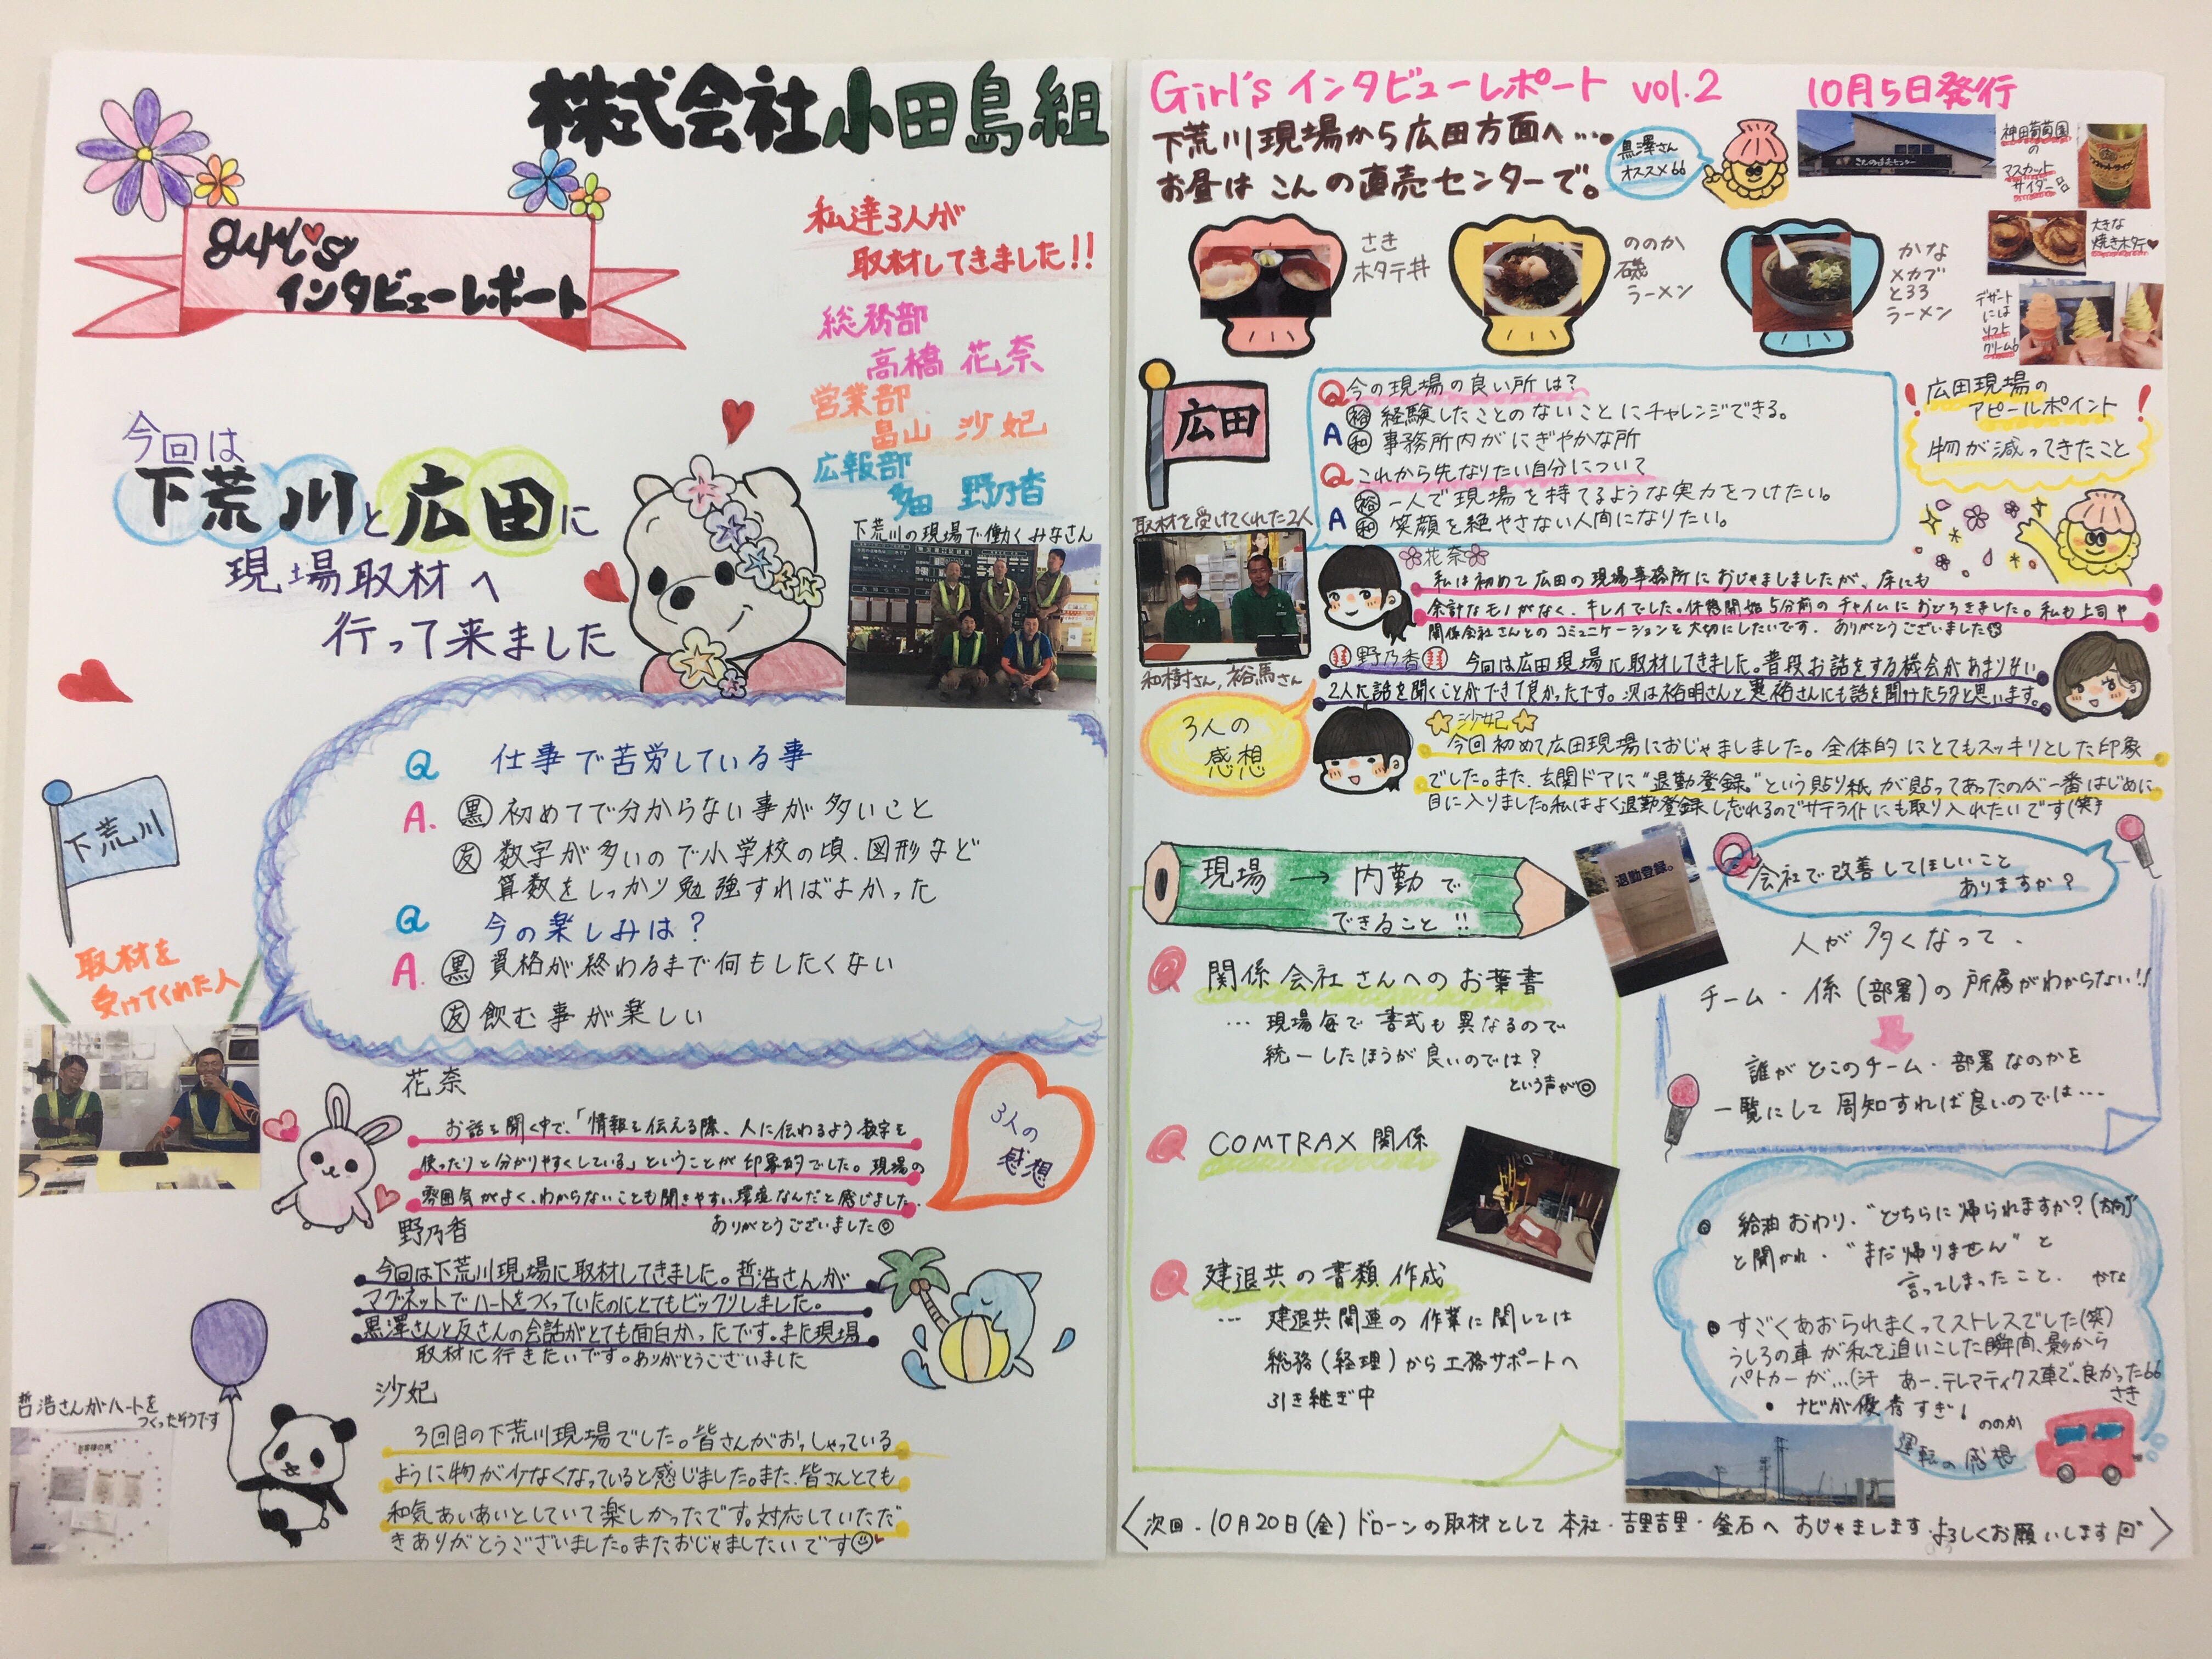 株式会社小田島組
girl's
インタビューレポート
私達3人が
取材してきました!!
総務部
高橋 花奈
営業部
畠山 沙妃
広報部
野乃香
今回は
下荒川と広田に
現場取材へ
行って来ました
下荒川の現場で働くみなさん
下荒川
取材を
受けてくれた人
Q 仕事で苦労している事
A. 黒 初めてで分からない事が多いこと
友 数字が多いので小学校の頃、図形など
算数をしっかり勉強すればよかった
Q 今の楽しみは?
A. 黒 資格が終わるまで何もしたくない
友 飲む事が楽しい
3人の
感想
花奈
お話を聞く中で、「情報を伝える際、人に伝わるよう数字を
使ったりと分かりやすくしている」ということが印象的でした。現場の
雰囲気がよく、わからないことも聞きやすい環境なんだと感じました。
ありがとうございました◎
野乃香
今回は下荒川現場に取材してきました。哲浩さんが
マグネットでハートをつくっていたのにとてもビックリしました。
黒澤さんと友さんの会話がとても面白かったです。また現場
取材に行きたいです。ありがとうございました
沙妃
3回目の下荒川現場でした。皆さんがおっしゃっている
ように物が少なくなっていると感じました。また、皆さんとても
和気あいあいとしていて楽しかったです。対応していただ
きありがとうございました。またおじゃましたいです
哲浩さんがハートを
つくったそうです
Girl's インタビューレポート vol.2 10月5日発行
下荒川現場から広田方面へ…。
お昼は こんの直売センターで。
黒澤さん
オススメ
こんの直売センター
神田葡萄園
の
マスカット
サイダー
大きな
焼きホタテ♥
デザート
には
ソフト
クリーム
さき
ホタテ丼
ののか
磯
ラーメン
かな
メカブ
とろろ
ラーメン
広田
Q 今の現場の良い所は?
A 裕 経験したことのないことにチャレンジできる。
和 事務所内がにぎやかな所
Q これから先なりたい自分について
A 裕 一人で現場を持てるような実力をつけたい。
和 笑顔を絶やさない人間になりたい。
広田現場の
アピールポイント
物が減ってきたこと
取材を受けてくれた2人
和樹さん、裕馬さん
3人の
感想
花奈
私は初めて広田の現場事務所におじゃましましたが、床にも
余計なモノがなく、キレイでした。休憩開始5分前のチャイムにおどろきました。私も上司や
関係会社さんとのコミュニケーションを大切にしたいです。ありがとうございました
野乃香 今回は広田現場に取材してきました。普段お話をする機会があまりない
2人に話を聞くことができて良かったです。次は裕明さんと さんにも話を聞けたらなと思います。
沙妃
今回初めて広田現場におじゃましました。全体的にとてもスッキリとした印象
でした。また、玄関ドアに“退勤登録。”という貼り紙が貼ってあったのが一番はじめに
目に入りました。私はよく退勤登録し忘れるのでサテライトにも取り入れたいです(笑)
現場→内勤で
できること!!
退勤登録。
Q 関係会社さんへのお葉書
…現場毎で書式も異なるので
統一したほうが良いのでは?
という声が◎
Q COMTRAX関係
Q 建退共の書類作成
… 建退共関連の作業に関しては
総務(経理)から工務サポートへ
引き継ぎ中
Q 会社で改善してほしいこと
ありますか?
人が多くなって、
チーム・係(部署)の所属がわからない!!
誰がどこのチーム・部署なのかを
一覧にして周知すれば良いのでは…
● 給油おわり、“どちらに帰られますか?(方向)”
と聞かれ、“まだ帰りません”と
言ってしまったこと。 かな
● すごくあおられまくってストレスでした(笑)
うしろの車が私を追いこした瞬間、影から
パトカーが…(汗 あー、テレマティクス車で良かった
さき
• ナビが優秀すぎ!
ののか
運転の感想
〈次回、10月20日(金)ドローンの取材として 本社・吉里吉里・釜石へ おじゃまします よろしくお願いします 〉